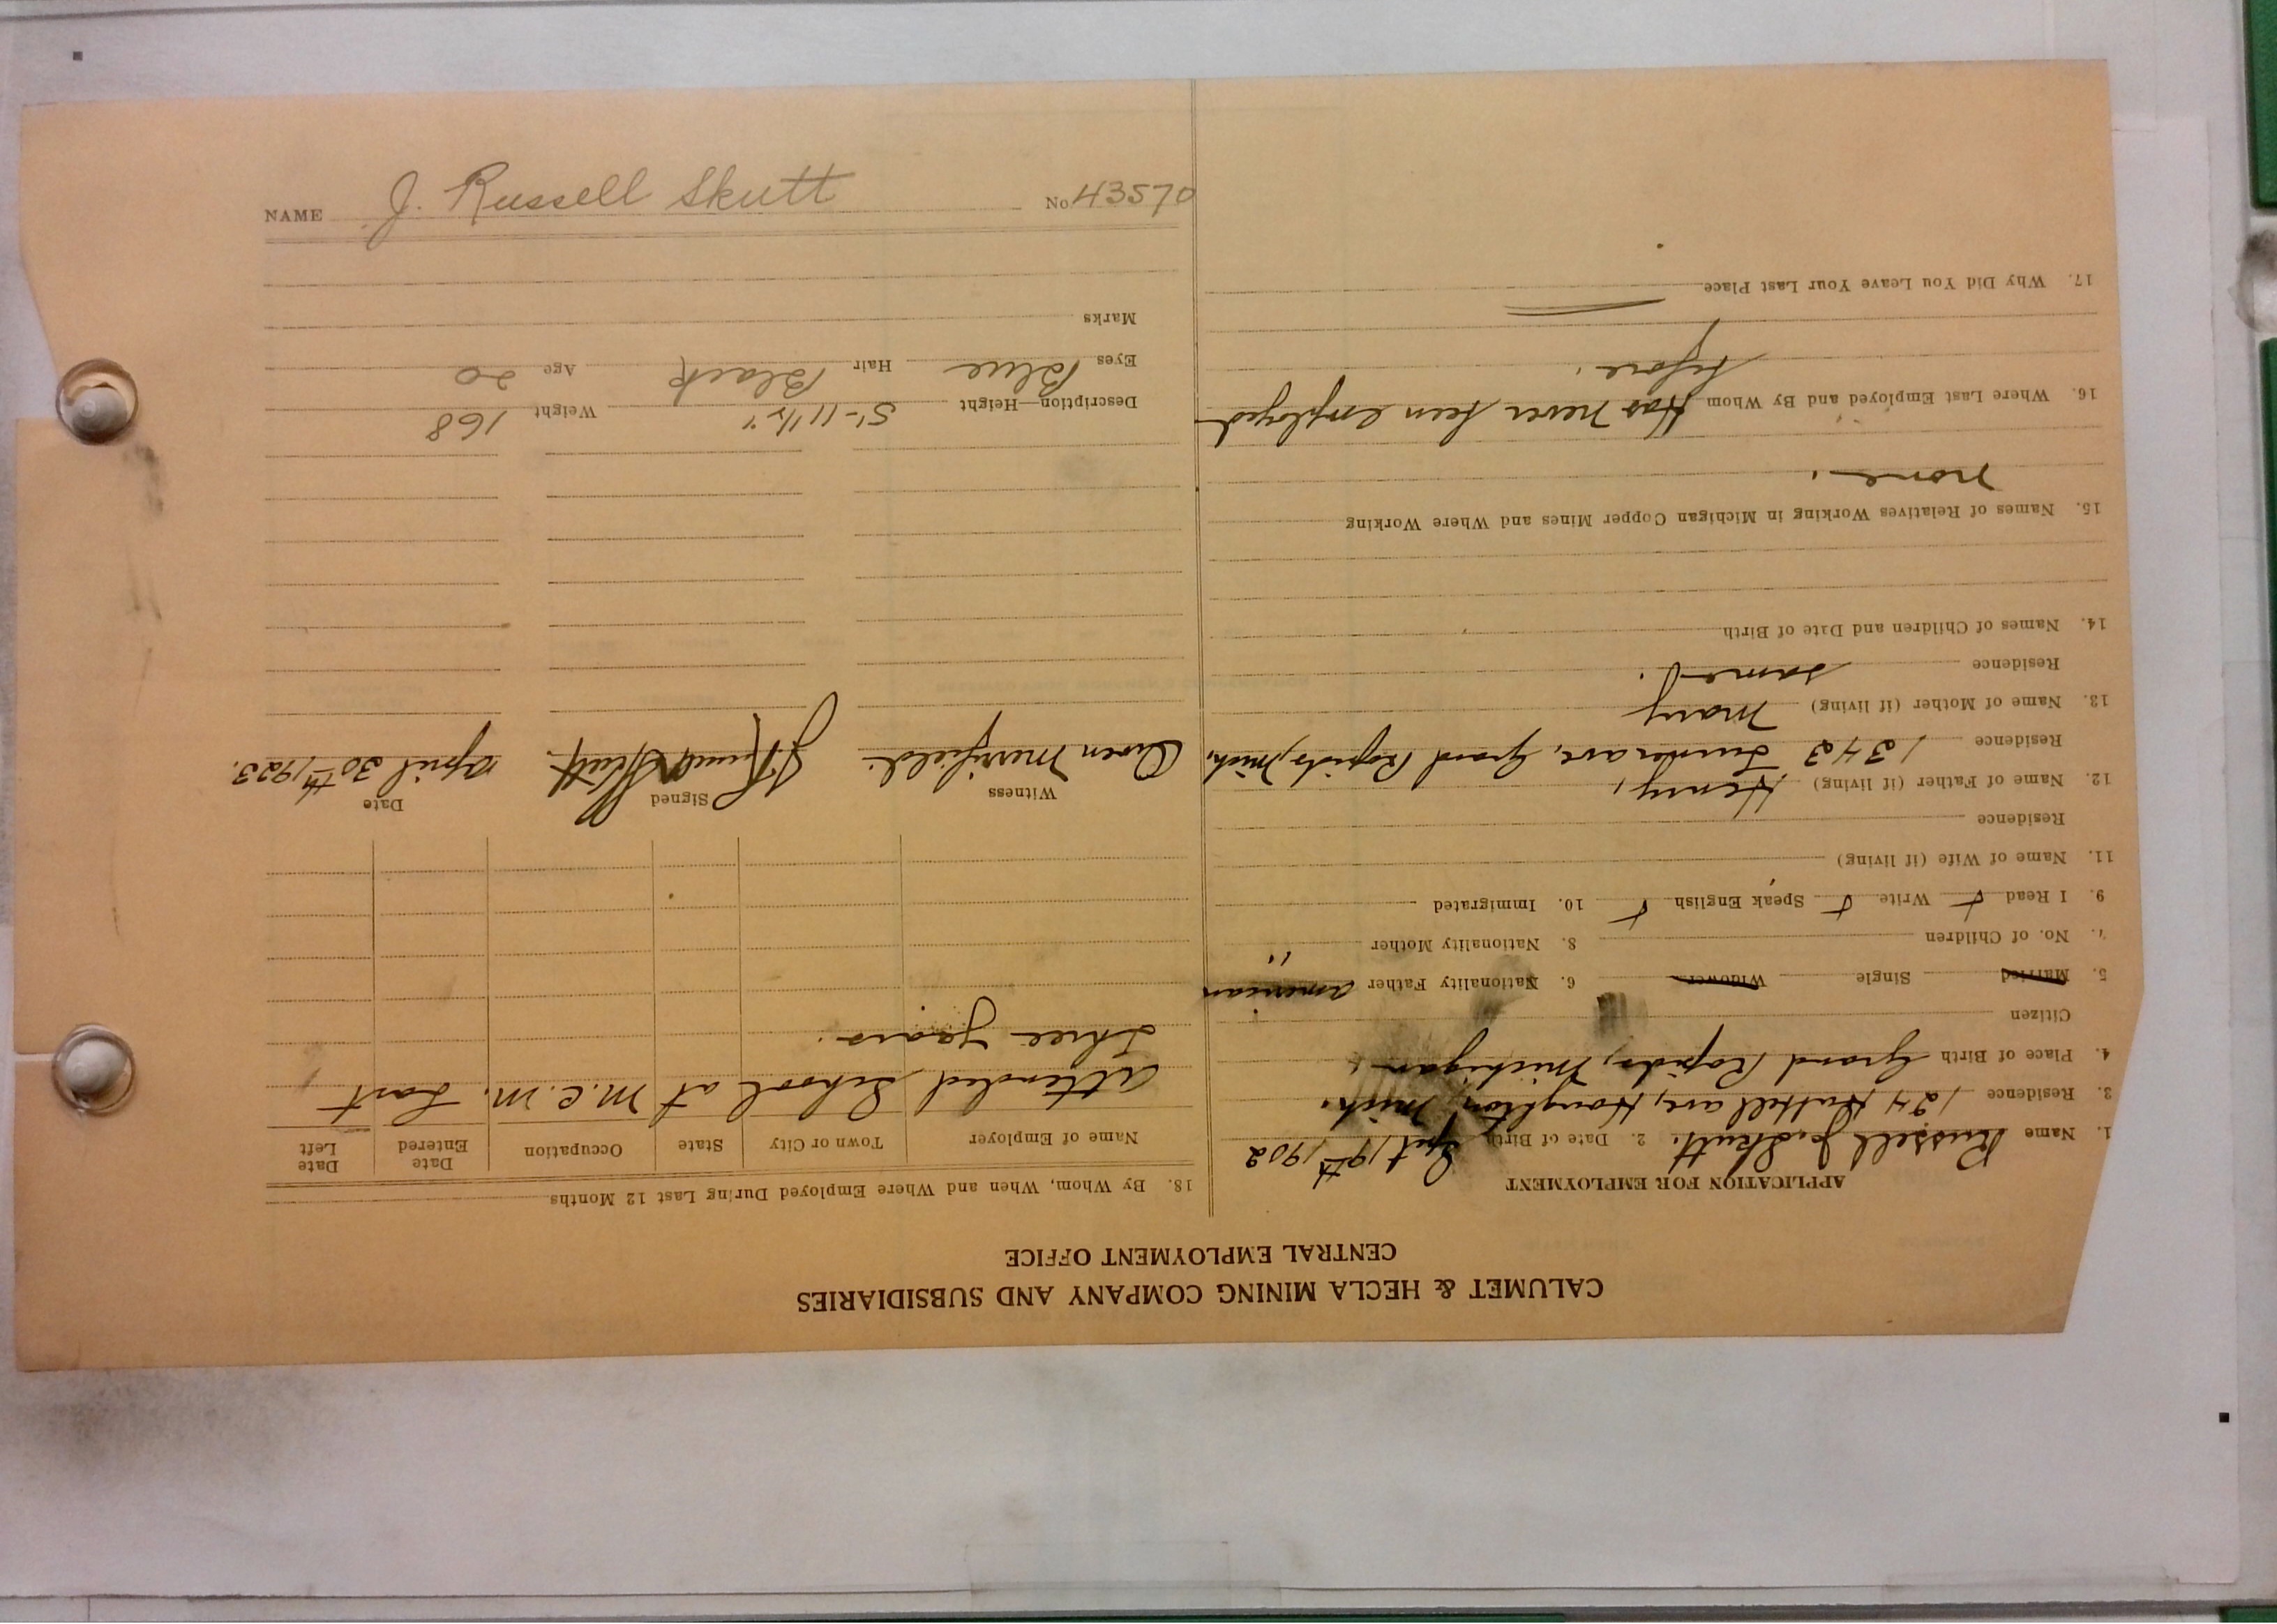 CALUMET & HECLA MINING COMPANY AND SUBSIDIARIES
CENTRAL EMPLOYMENT OFFICE
APPLICATION FOR EMPLOYMENT
1. Name Russell J. Skutt. 2. Date of Birth Sept 19th 1902
3. Residence 124 Hubbell ave, Houghton, Mich.
4. Place of Birth Grand Rapids, Michigan.
Citizen
5. Married Single Widower 6. Nationality Father American
7. No. of Children 8. Nationality Mother "
9. I Read Write Speak English 10. Immigrated
11. Name of Wife (if living)
Residence
12. Name of Father (if living) Henry,
Residence 1343 ave, Grand Rapids, Mich.
13. Name of Mother (if living) Mary
Residence same.
14. Names of Children and Date of Birth
15. Names of Relatives Working in Michigan Copper Mines and Where Working
None.
16. Where Last Employed and By Whom Has never been employed
before.
17. Why Did You Leave Your Last Place
18. By Whom, When and Where Employed During Last 12 Months
Name of Employer Town or City State Occupation Date Entered Date Left
Attended School at M.C.M. Last
three years.
Witness Signed Date
Owen Merrifield. J Russell Skutt. April 30th, 1923.
Description—Height 5'-11 1/2" Weight 168
Eyes Blue Hair Black Age 20
Marks
NAME J. Russell Skutt No. 43570